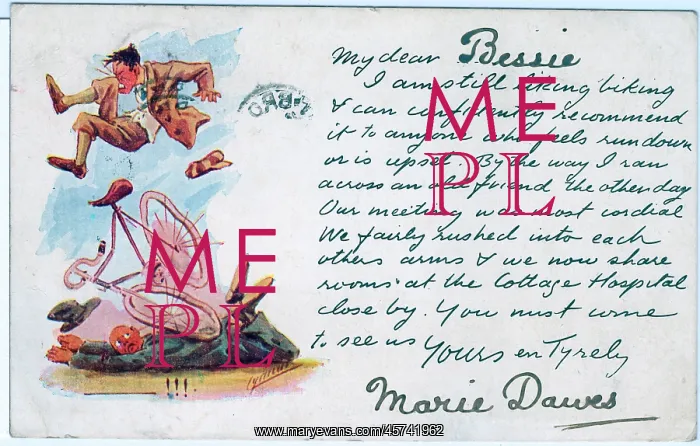 My dear Bessie
I am still liking biking
& can confidently recommend
it to anyone who feels rundown
or is upset. By the way I ran
across an old friend the other day
Our meeting was most cordial
We fairly rushed into each
others arms & we now share
rooms at the Cottage Hospital
close by. You must come
to see us
Yours en Tyrely
Marie Dawes
!!!
ME
PL
ME
PL
www.maryevans.com/45741962